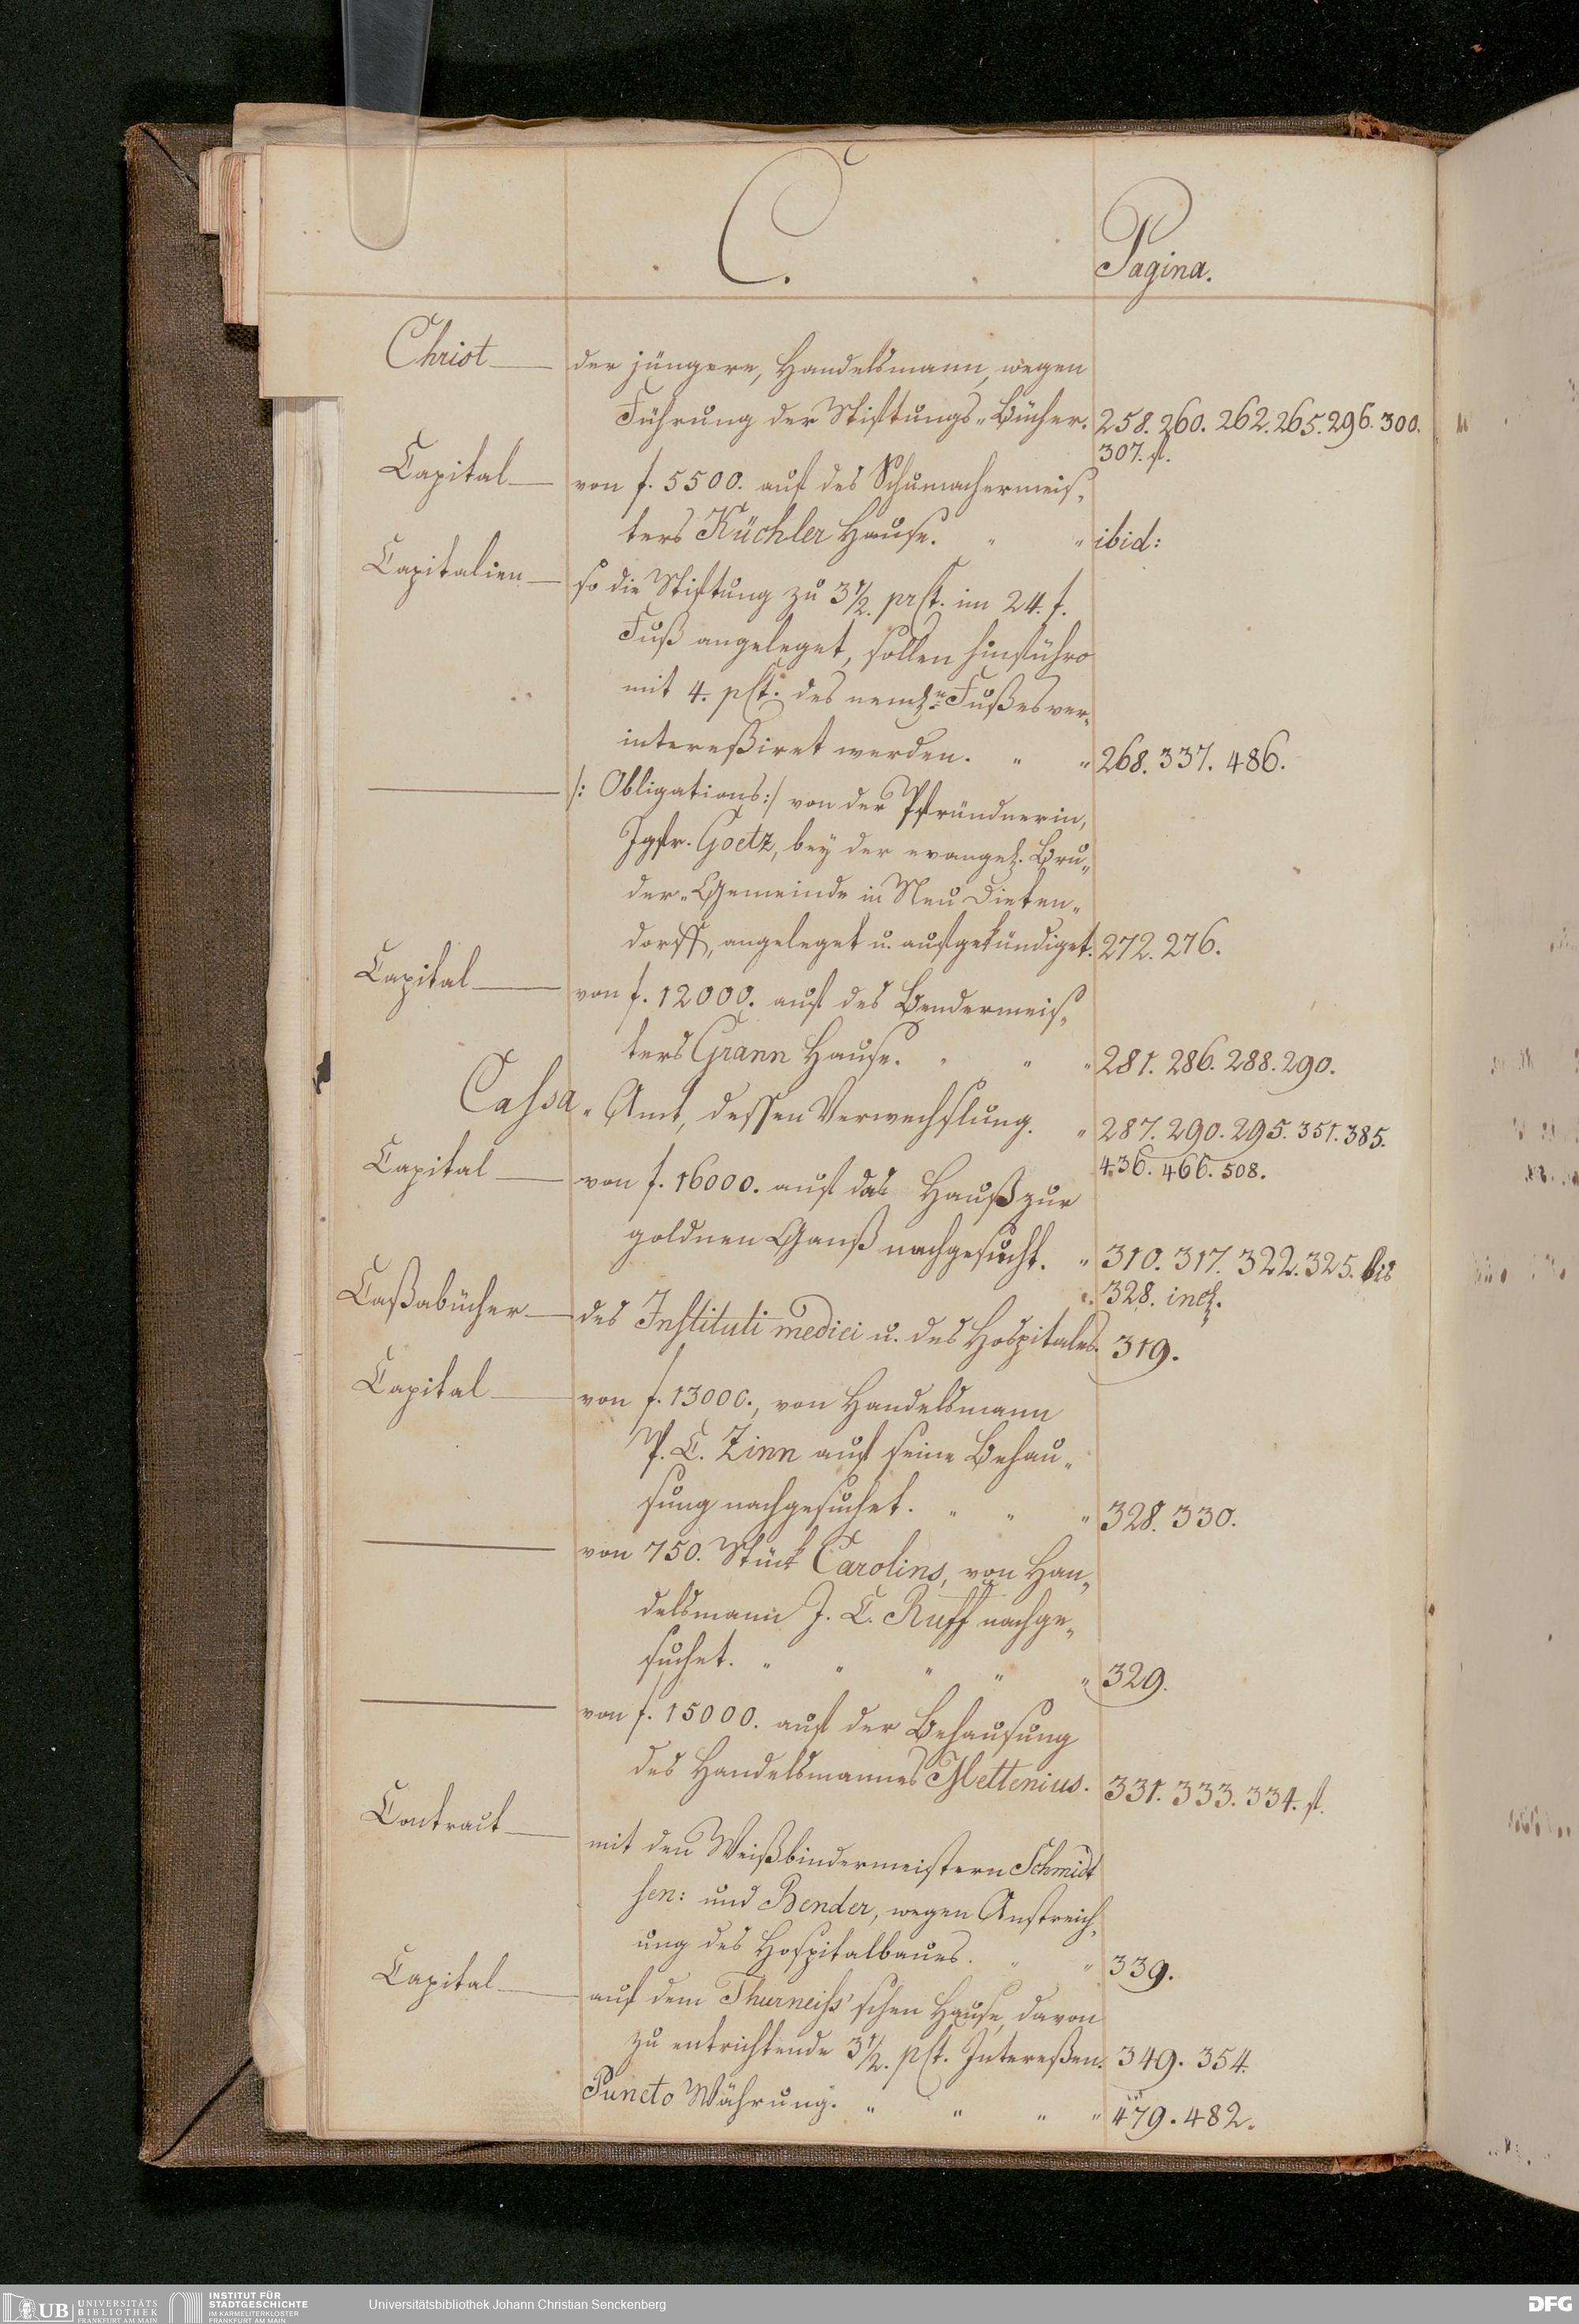 C.
Pagina.
Christ — der jüngere, Handelsmann, wegen
Führung der Stiftungs-Bücher. 258. 260. 262. 265. 296. 300.
307. f.
Capital — von f. 5500. auf des Schumachermeis-
ters Küchler Hause. " " ibid:
Capitalien — so die Stiftung zu 3 1/2. prCt. im 24. f.
Fuß angeleget, sollen hinführo
mit 4. pCt. des neml:n Fußes ver-
intereßiret werden. " " 268. 337. 486.
— /: Obligations:/ von der Pfründnerin,
Jgfr. Goetz, bey der evangel. Bru-
der-Gemeinde in Neu Dieten-
dorff, angeleget u. aufgekündiget. 272. 276.
Capital — von f. 12000. auf des Bendermeis-
ters Grann Hause. " " " 281. 286. 288. 290.
Cassa-Amt, dessen Verwechslung. " 287. 290. 295. 351. 385.
436. 466. 508.
Capital — von f. 16000. auf das Hauß zur
goldnen Ganß nachgesucht. " 310. 317. 322. 325. bis
328. incl.
Caßabücher — des Instituti medici u. des Hospitales. 319.
Capital — von f. 13000., von Handelsmann
P. C. Zinn auf seine Behau-
sung nachgesuchet. " " " 328. 330.
— von 750. Stück Carolins, von Han-
delsmann J. C. Ruff nachge-
suchet. " " " " " 329.
— von f. 15000. auf der Behausung
des Handelsmannes Mettenius. 331. 333. 334. f.
Contract — mit den Weißbindermeistern Schmidt
sen: und Bender, wegen Anstreich-
ung des Hospitalbaues. " " 339.
Capital — auf dem Thurneiss'schen Hause, davon
zu entrichtende 3 1/2. pCt. Intereßen. 349. 354.
Puncto Währung. " " " " 479. 482.
UB UNIVERSITÄTS
BIBLIOTHEK
FRANKFURT AM MAIN
INSTITUT FÜR
STADTGESCHICHTE
IM KARMELITERKLOSTER
FRANKFURT AM MAIN
Universitätsbibliothek Johann Christian Senckenberg
DFG